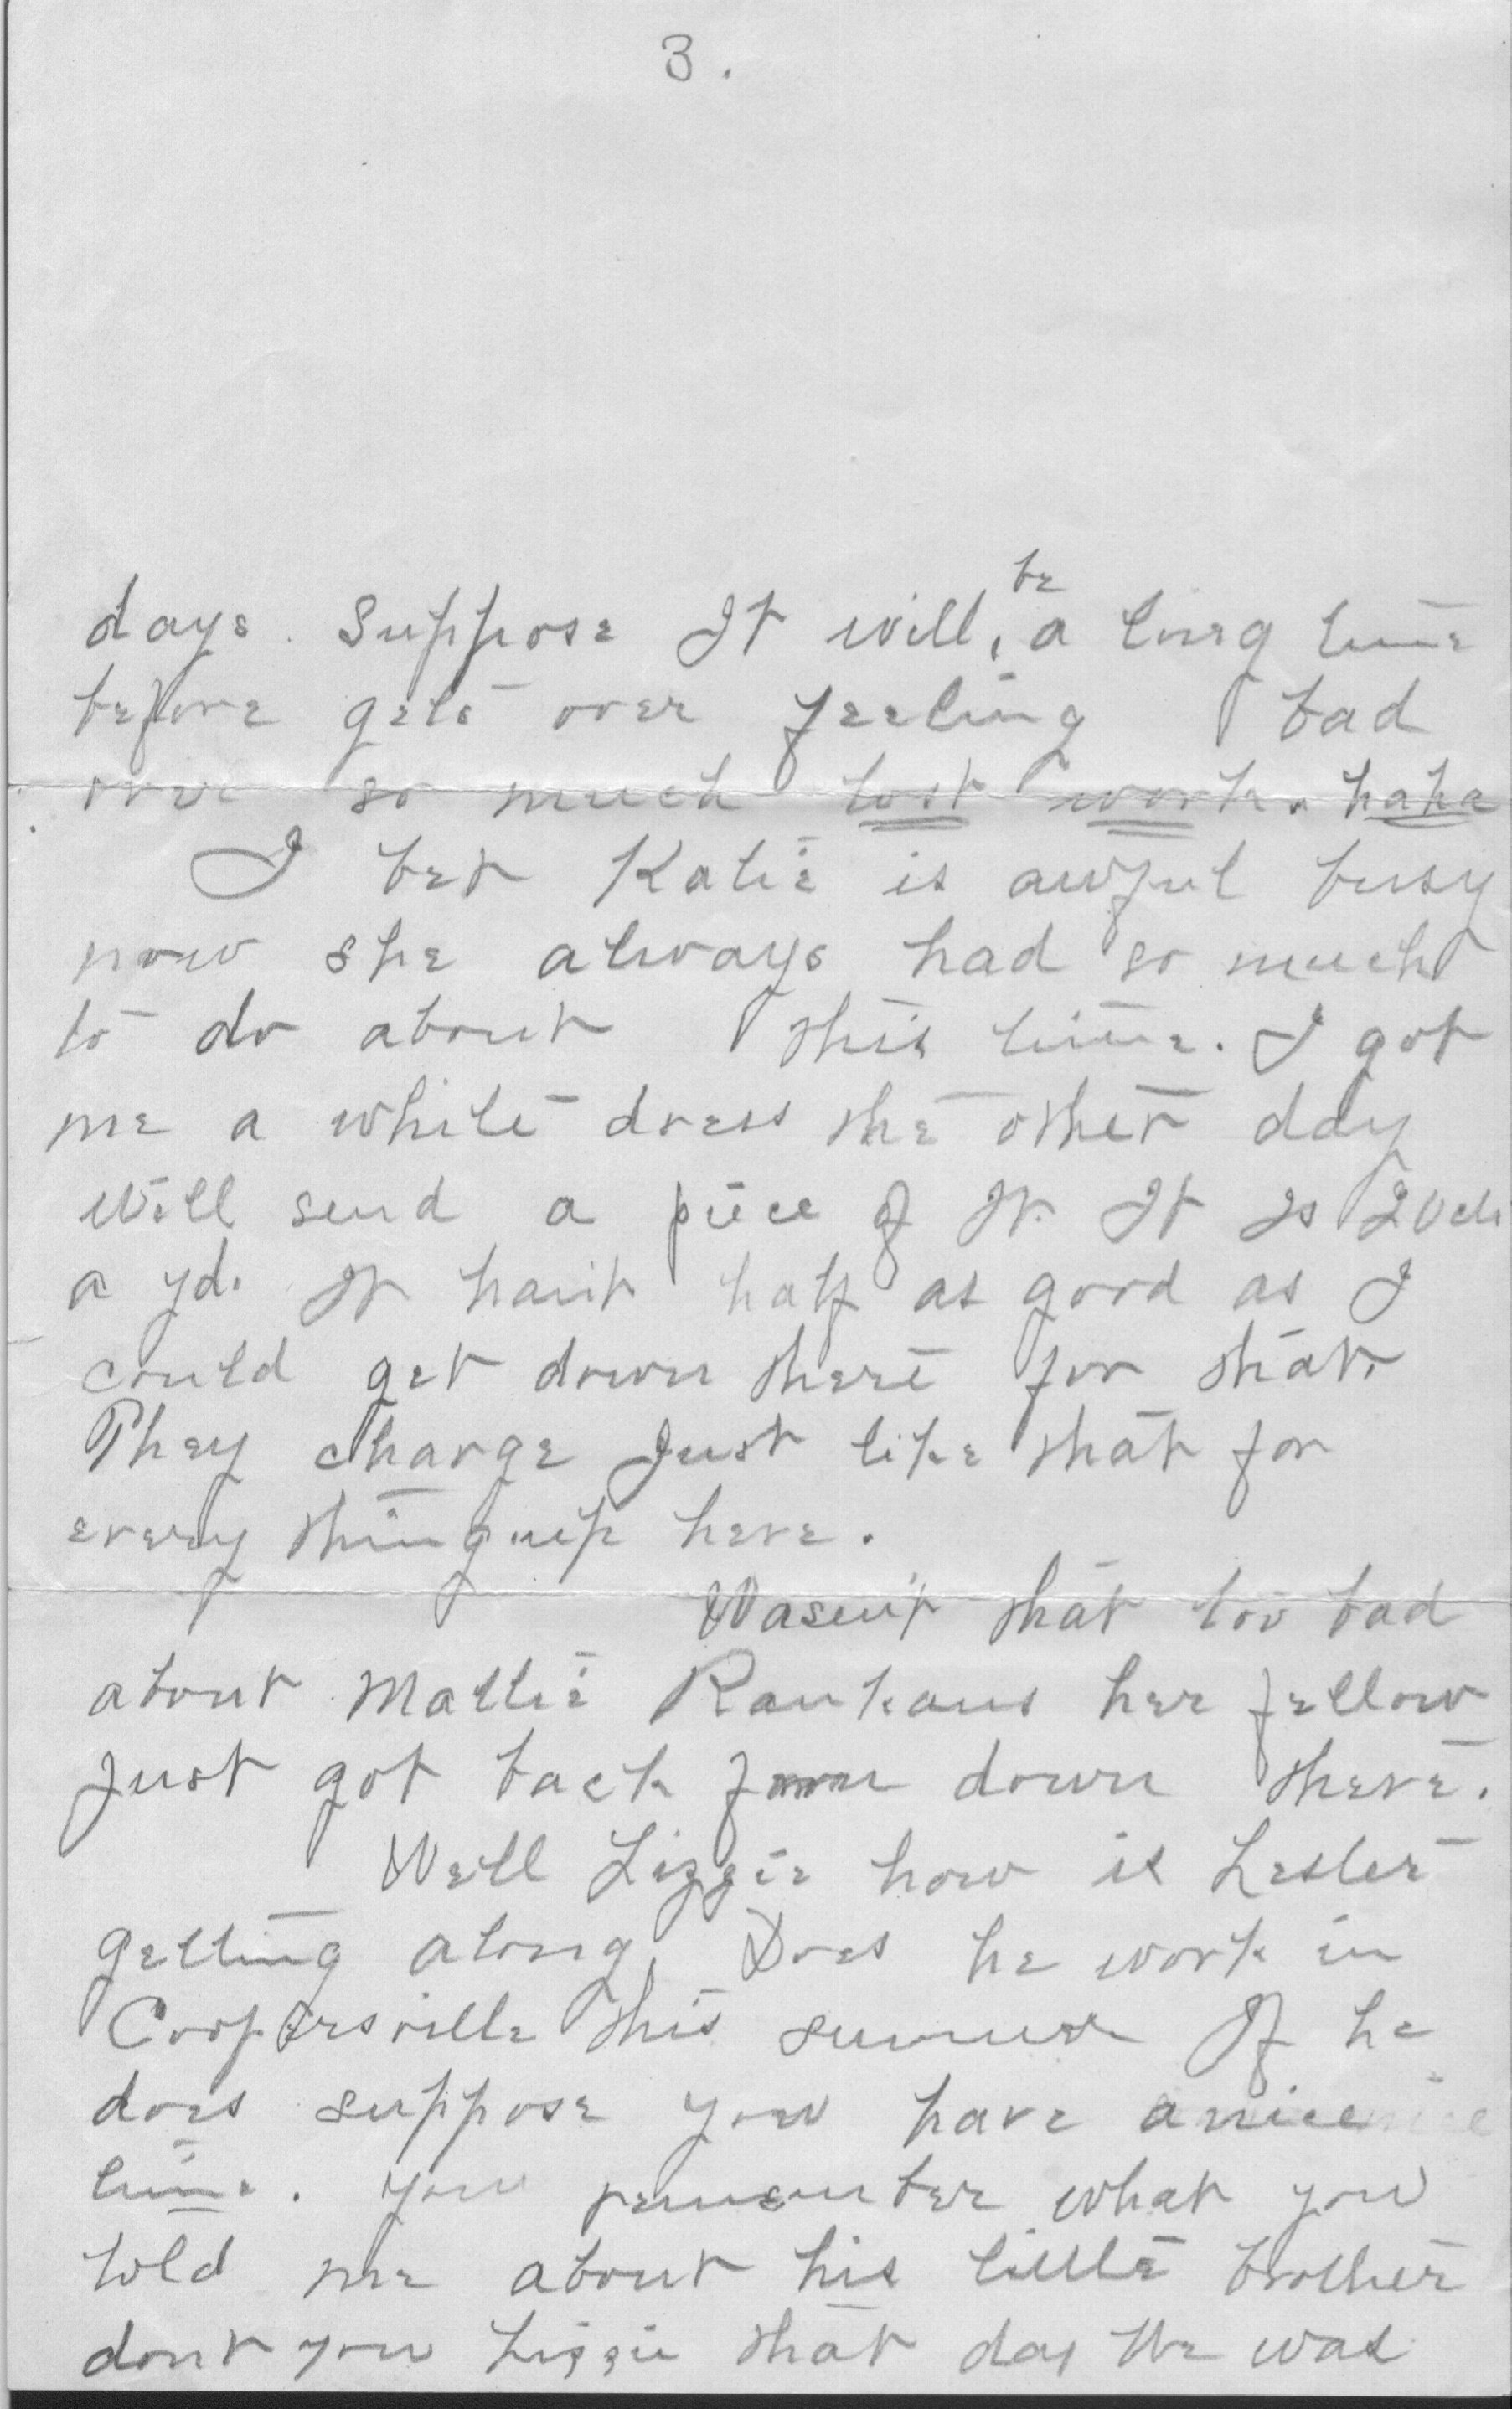 3.
be
days. Suppose It will, a long time
before gets over feeling bad
over so much lost work. haha
I bet Katie is awful busy
now she always had so much
to do about this time. I got
me a white dress the other day
Will send a piece of It. It Is 20cts
a yd. It hain't half as good as I
could get down there for that.
They charge Just like that for
every thing up here.
Wasen't that too bad
about Mattie her fellow
Just got back from down there.
Well Lizzie how is Lester
getting along, Does he work in
Coopersville this summer If he
does suppose you have a nice
time. You remember what you
told me about his little brother
dont you Lizzie that day We was